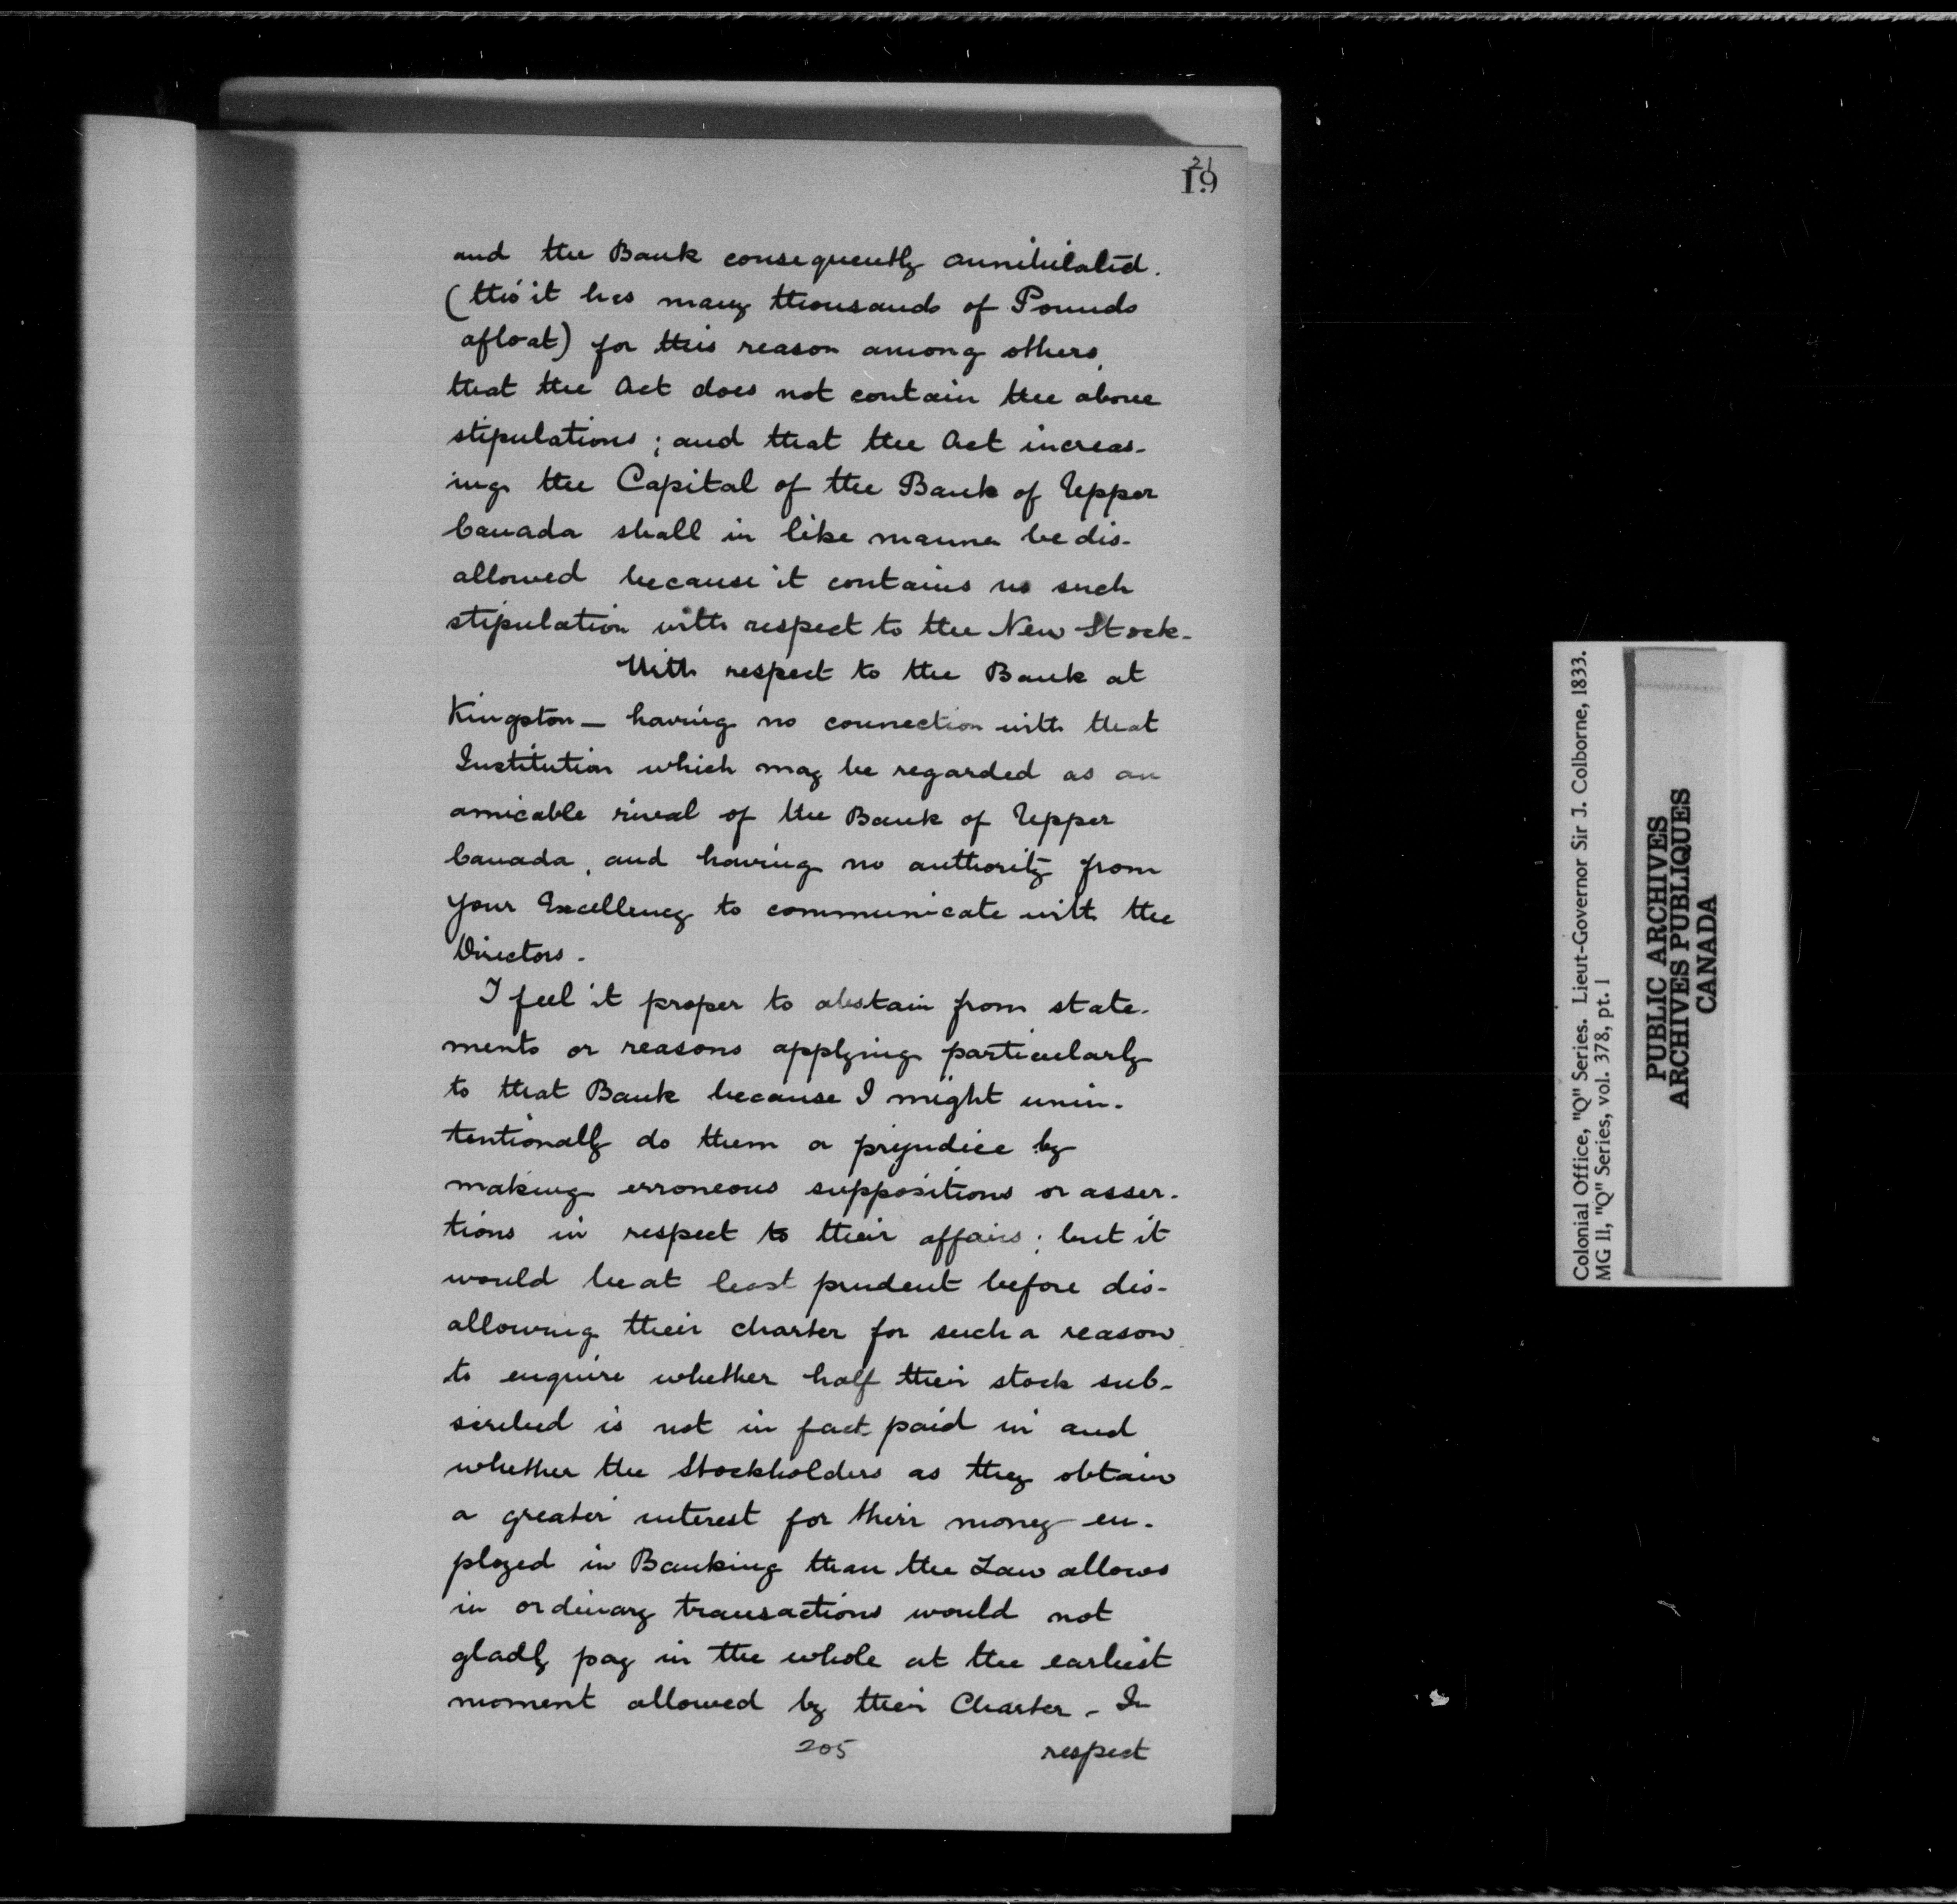 21
19
and the Bank consequently annihilated.
(tho' it has many thousands of Pounds
afloat) for this reason among others,
that the Act does not contain the above
stipulations; and that the Act increas-
ing the Capital of the Bank of Upper
Canada shall in like manner be dis-
allowed because it contains no such
stipulation with respect to the New Stock.
With respect to the Bank at
Kingston — having no connection with that
Institution which may be regarded as an
amicable rival of the Bank of Upper
Canada, and having no authority from
your Excellency to communicate with the
Directors.
I feel it proper to abstain from state-
ments or reasons applying particularly
to that Bank because I might unin-
tentionally do them a prejudice by
making erroneous suppositions or asser-
tions in respect to their affairs; but it
would be at least prudent before dis-
allowing their charter for such a reason
to enquire whether half their stock sub-
scribed is not in fact paid in and
whether the Stockholders as they obtain
a greater interest for their money em-
ployed in Banking than the Law allows
in ordinary transactions would not
gladly pay in the whole at the earliest
moment allowed by their Charter - In
205 respect
Colonial Office, "Q" Series. Lieut-Governor Sir J. Colborne, 1833.
MG 11, "Q" Series, vol. 378, pt. 1
PUBLIC ARCHIVES
ARCHIVES PUBLIQUES
CANADA